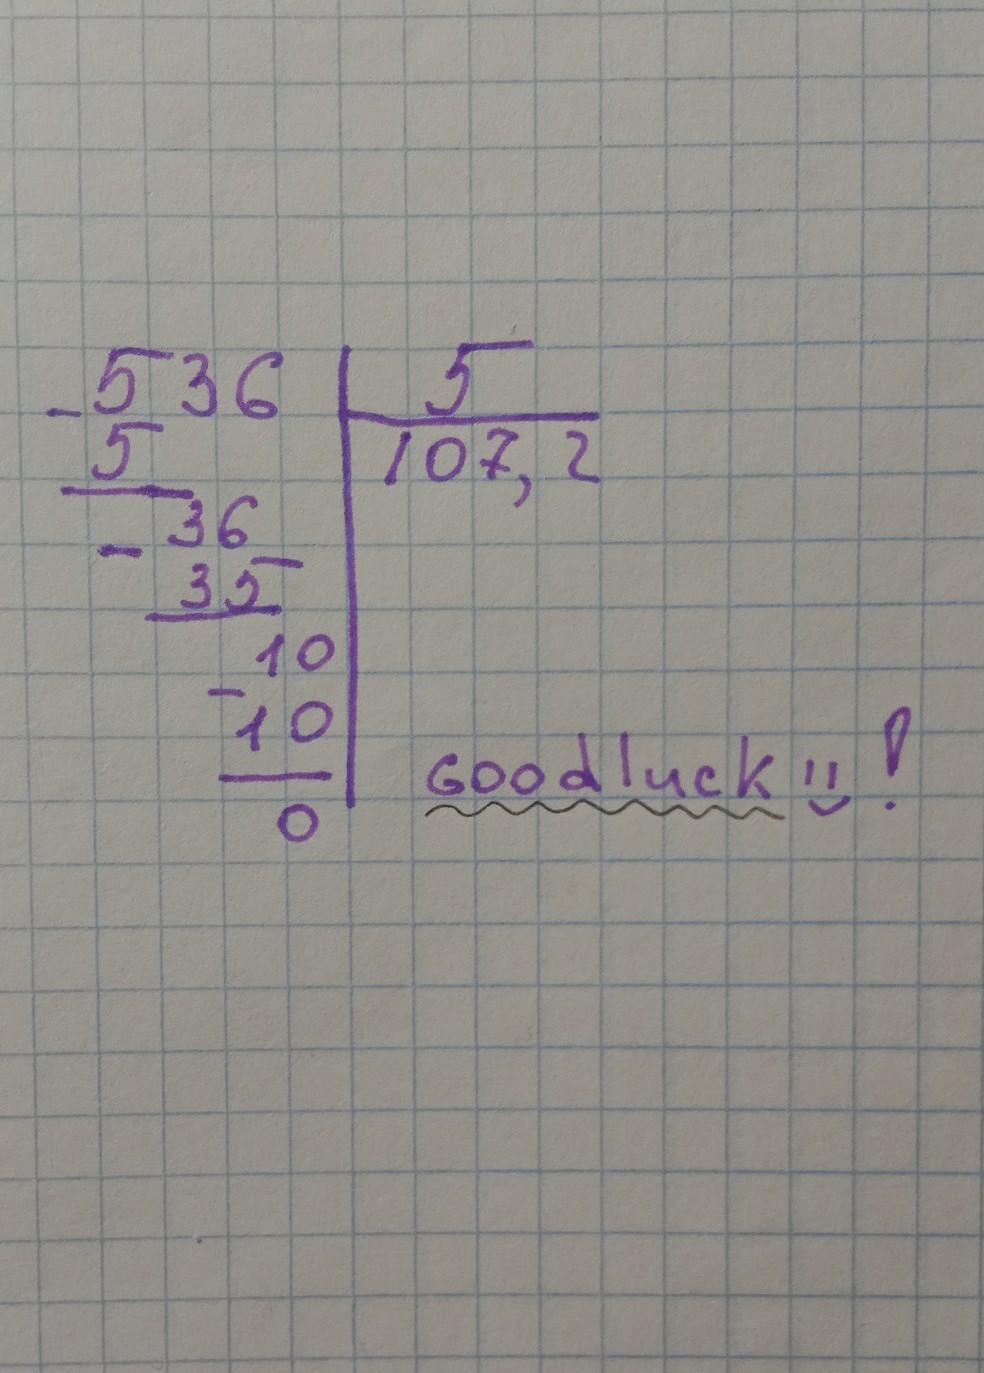 - 536 5
5 107,2
36
- 35
10
- 10
0
Goodluck !